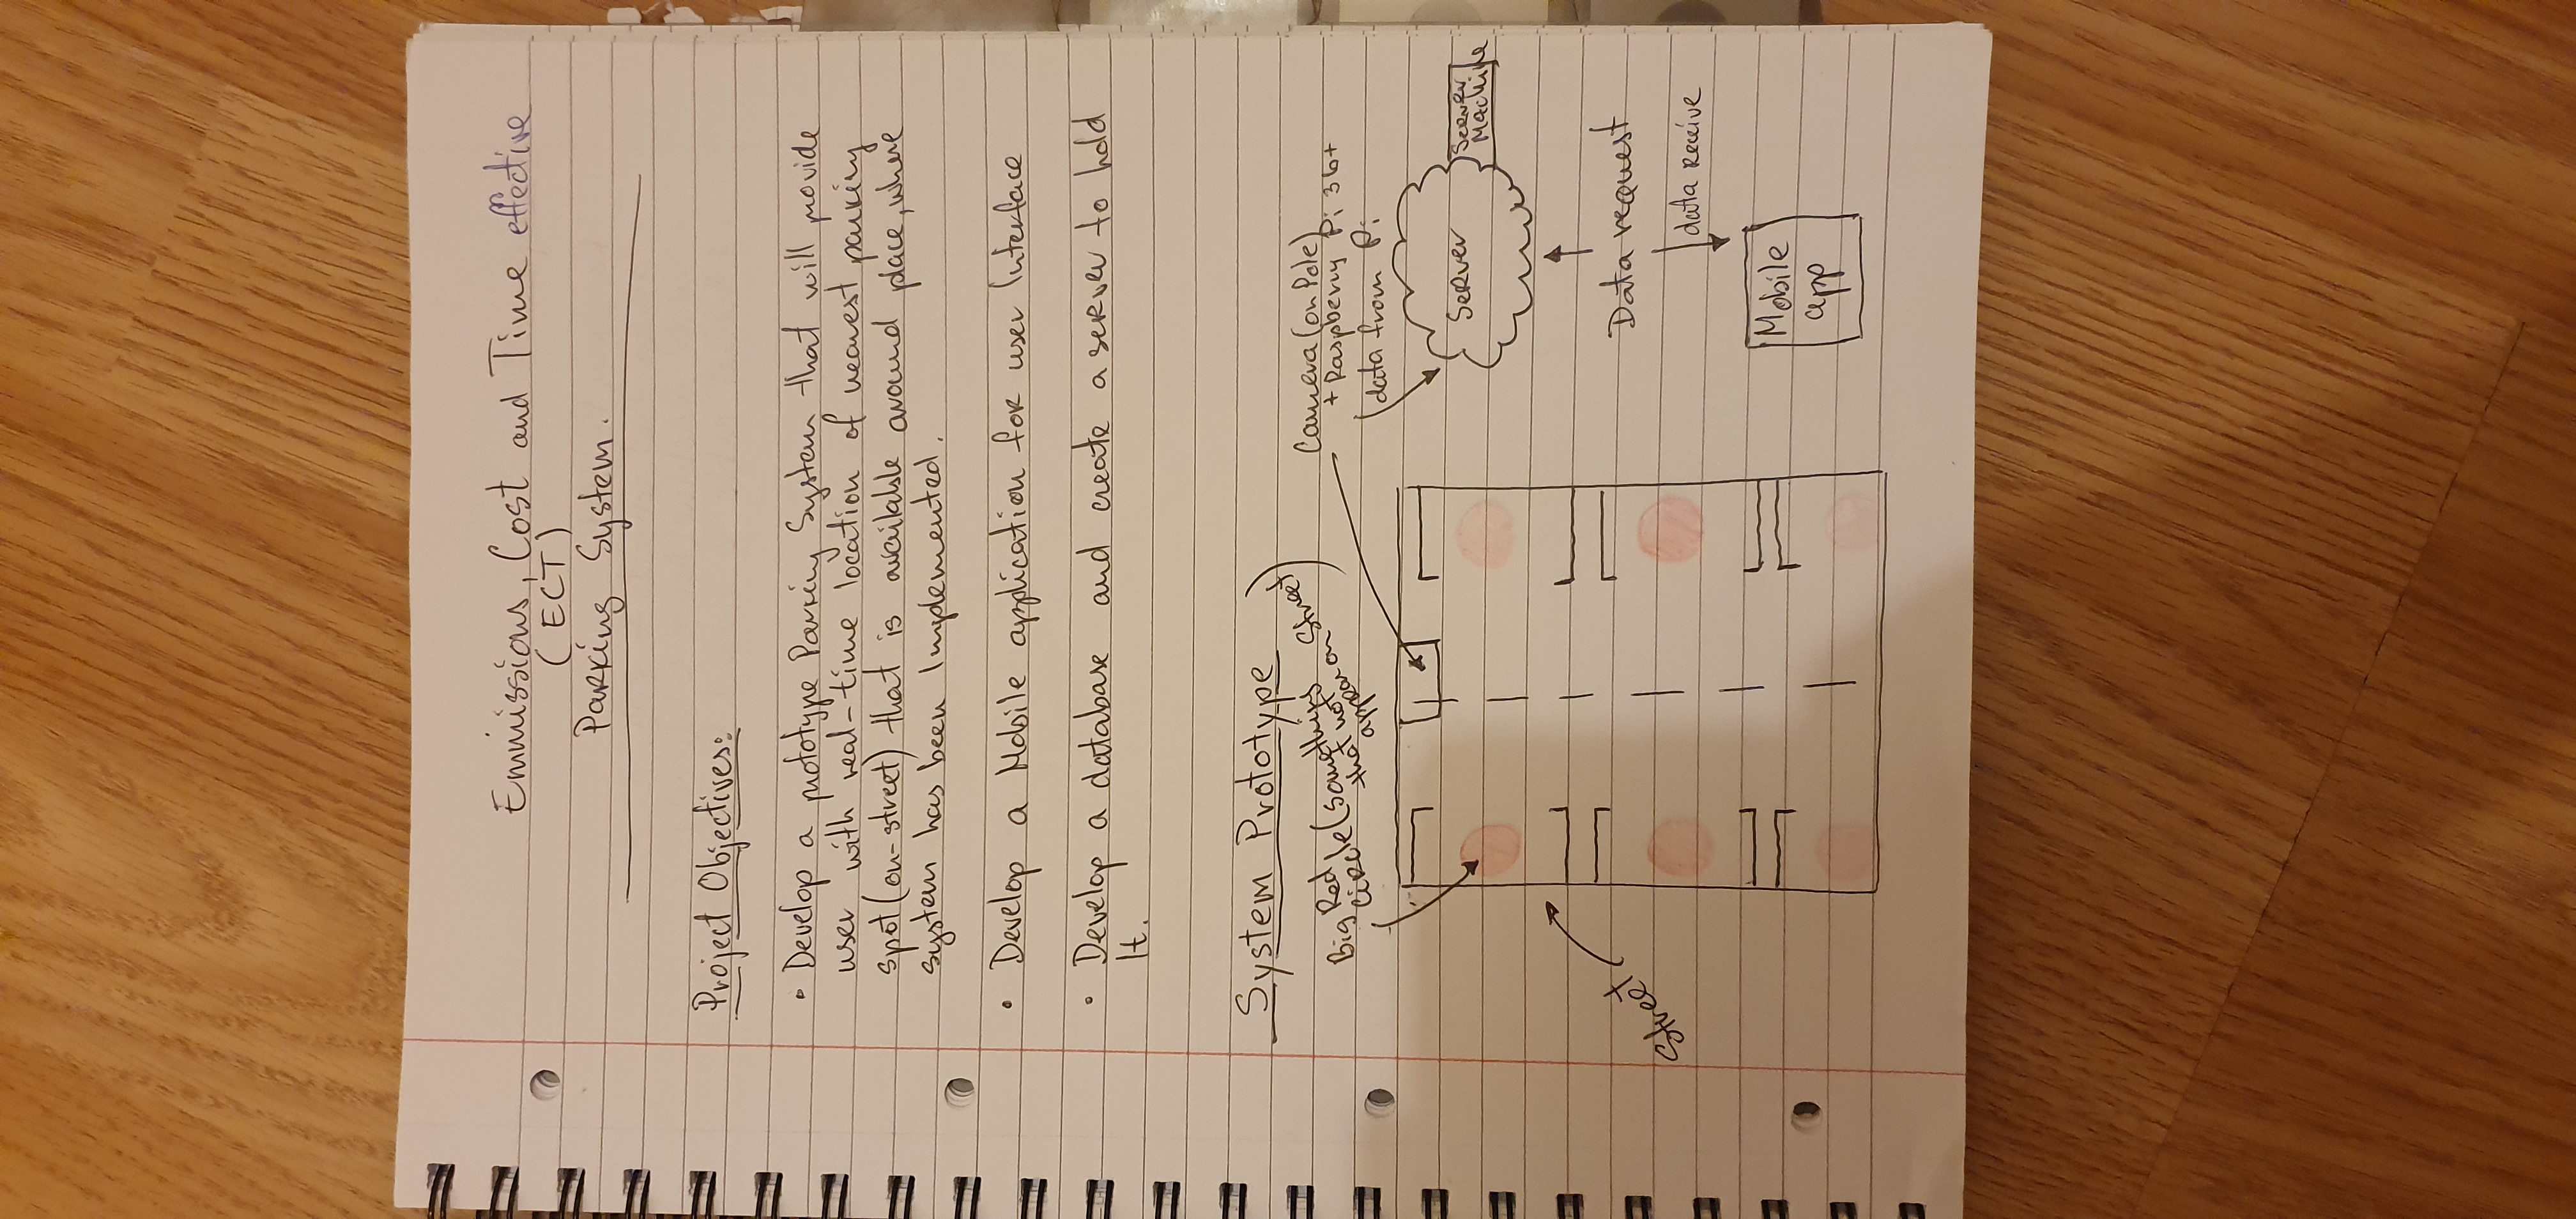 Emmissions, Cost and Time effective
(ECT)
Parking System.
Project Objectives:
• Develop a prototype Parking System that will provide
user with real-time location of nearest parking
spot (on-street) that is available around place, where
system has been Implemented.
• Develop a Mobile application for user Interface
• Develop a database and create a server to hold
It.
System Prototype
Big Red
circle (something
that not
appear on Street)
Camera (on Pole)
+ Raspberry Pi 3b+
data from Pi
Server
Server
Machine
Street
Data request
data receive
Mobile
app